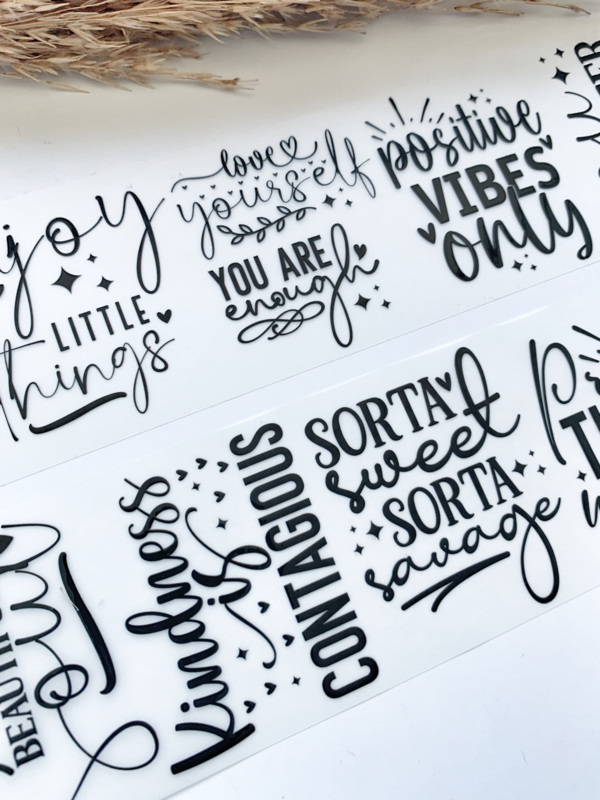 enjoy
LITTLE
things
love
yourself
YOU ARE
enough
positive
VIBES
only
Kindness
is
CONTAGIOUS
SORTA
sweet
SORTA
savage